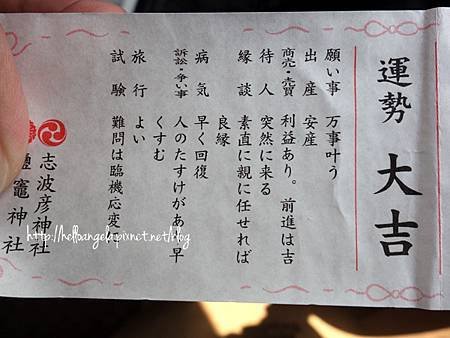 運勢 大吉
願い事 万事叶う
出産 安産
商売・売買 利益あり。前進は吉
待人 突然に来る
縁談 素直に親に任せれば
良縁
病気 早く回復
訴訟・争い事 人のたすけがあり早
くすむ
旅行 よい
試験 難問は臨機応変
志波彦神社
鹽竈神社
http://helloangela.pixnet.net/blog